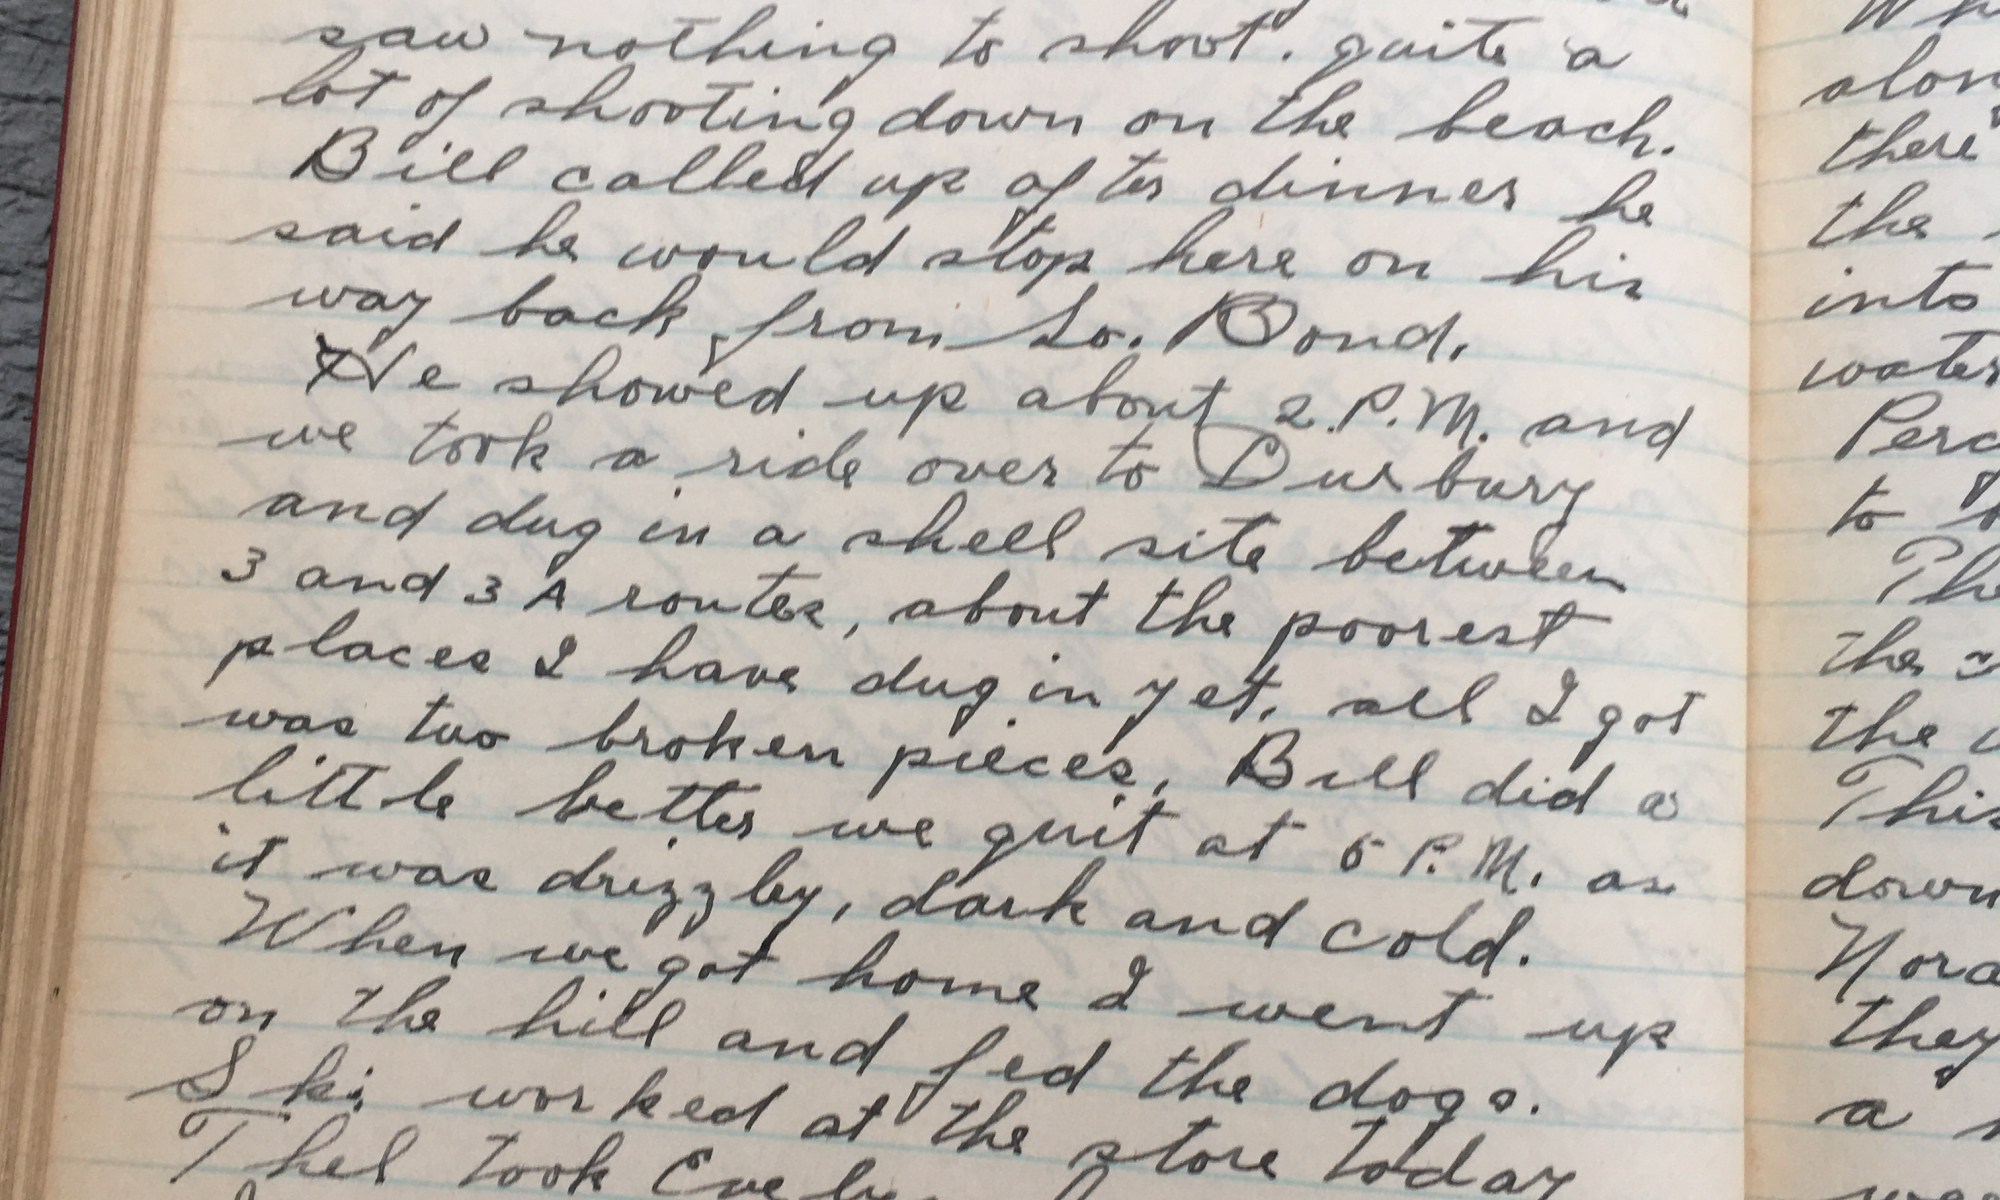 saw nothing to shoot. quite a
lot of shooting down on the beach.
Bill called up after dinner he
said he would stop here on his
way back from So. Bond.
He showed up about 2.P.M. and
we took a ride over to Duxbury
and dug in a shell site between
3 and 3A routes, about the poorest
places I have dug in yet, all I got
was two broken pieces, Bill did a
little better we quit at 5 P.M. as
it was drizzley, dark and cold.
When we got home I went up
on the hill and fed the dogs.
Ski worked at the store today
Thel took
there
the
into
water
to
The
the
the
This
down
they
a